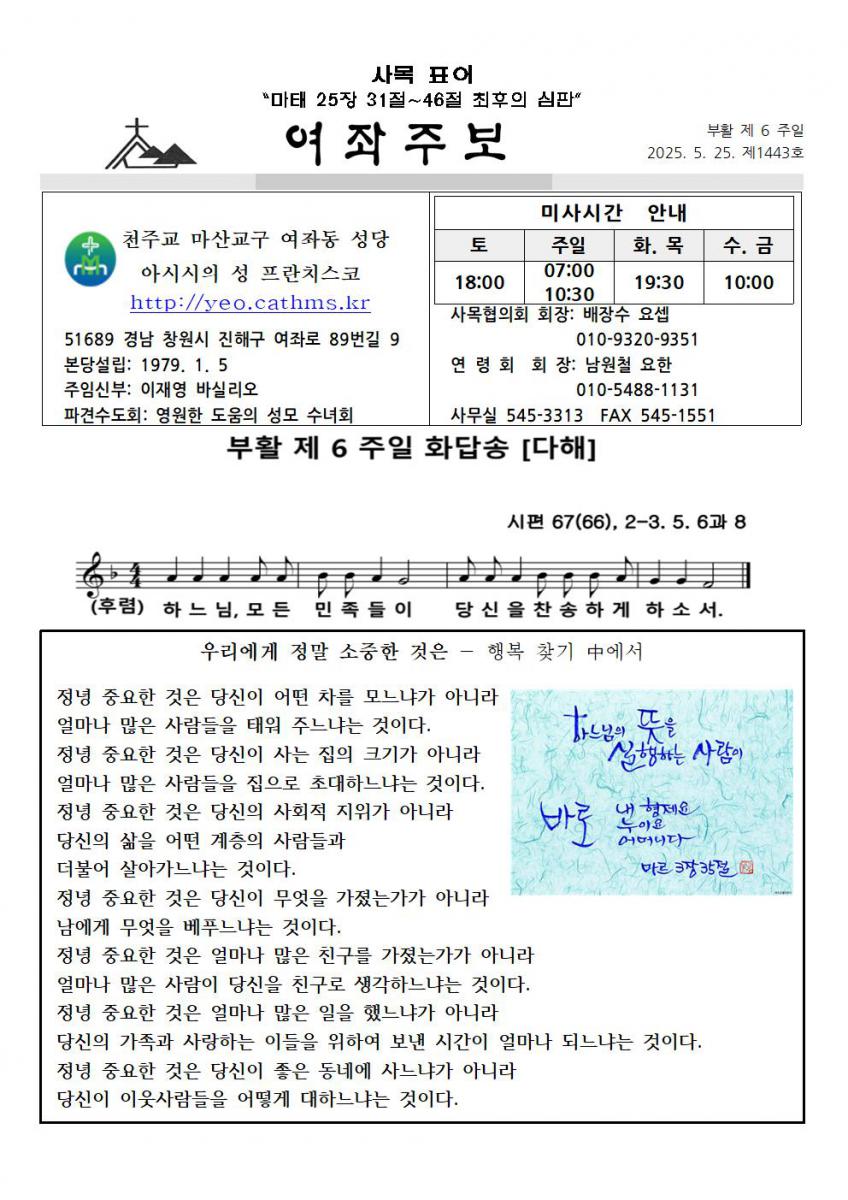 사목 표어
“마태 25장 31절~46절 최후의 심판”
여좌주보
부활 제 6 주일
2025. 5. 25. 제1443호
천주교 마산교구 여좌동 성당
아시시의 성 프란치스코
http://yeo.cathms.kr
51689 경남 창원시 진해구 여좌로 89번길 9
본당설립: 1979. 1. 5
주임신부: 이재영 바실리오
파견수도회: 영원한 도움의 성모 수녀회
미사시간 안내
토 주일 화. 목 수. 금
18:00 07:00 10:30 19:30 10:00
사목협의회 회장: 배장수 요셉
010-9320-9351
연 령 회 회 장: 남원철 요한
010-5488-1131
사무실 545-3313 FAX 545-1551
부활 제 6 주일 화답송 [다해]
시편 67(66), 2-3. 5. 6과 8
(후렴) 하 느 님, 모 든 민 족 들 이 당 신 을 찬 송 하 게 하 소 서.
우리에게 정말 소중한 것은 - 행복 찾기 中에서
정녕 중요한 것은 당신이 어떤 차를 모느냐가 아니라
얼마나 많은 사람들을 태워 주느냐는 것이다.
정녕 중요한 것은 당신이 사는 집의 크기가 아니라
얼마나 많은 사람들을 집으로 초대하느냐는 것이다.
정녕 중요한 것은 당신의 사회적 지위가 아니라
당신의 삶을 어떤 계층의 사람들과
더불어 살아가느냐는 것이다.
정녕 중요한 것은 당신이 무엇을 가졌는가가 아니라
남에게 무엇을 베푸느냐는 것이다.
정녕 중요한 것은 얼마나 많은 친구를 가졌는가가 아니라
얼마나 많은 사람이 당신을 친구로 생각하느냐는 것이다.
정녕 중요한 것은 얼마나 많은 일을 했느냐가 아니라
당신의 가족과 사랑하는 이들을 위하여 보낸 시간이 얼마나 되느냐는 것이다.
정녕 중요한 것은 당신이 좋은 동네에 사느냐가 아니라
당신이 이웃사람들을 어떻게 대하느냐는 것이다.
하느님의 뜻을
실행하는 사람이
바로 내 형제요
누이요
어머니다
마르 3장 35절